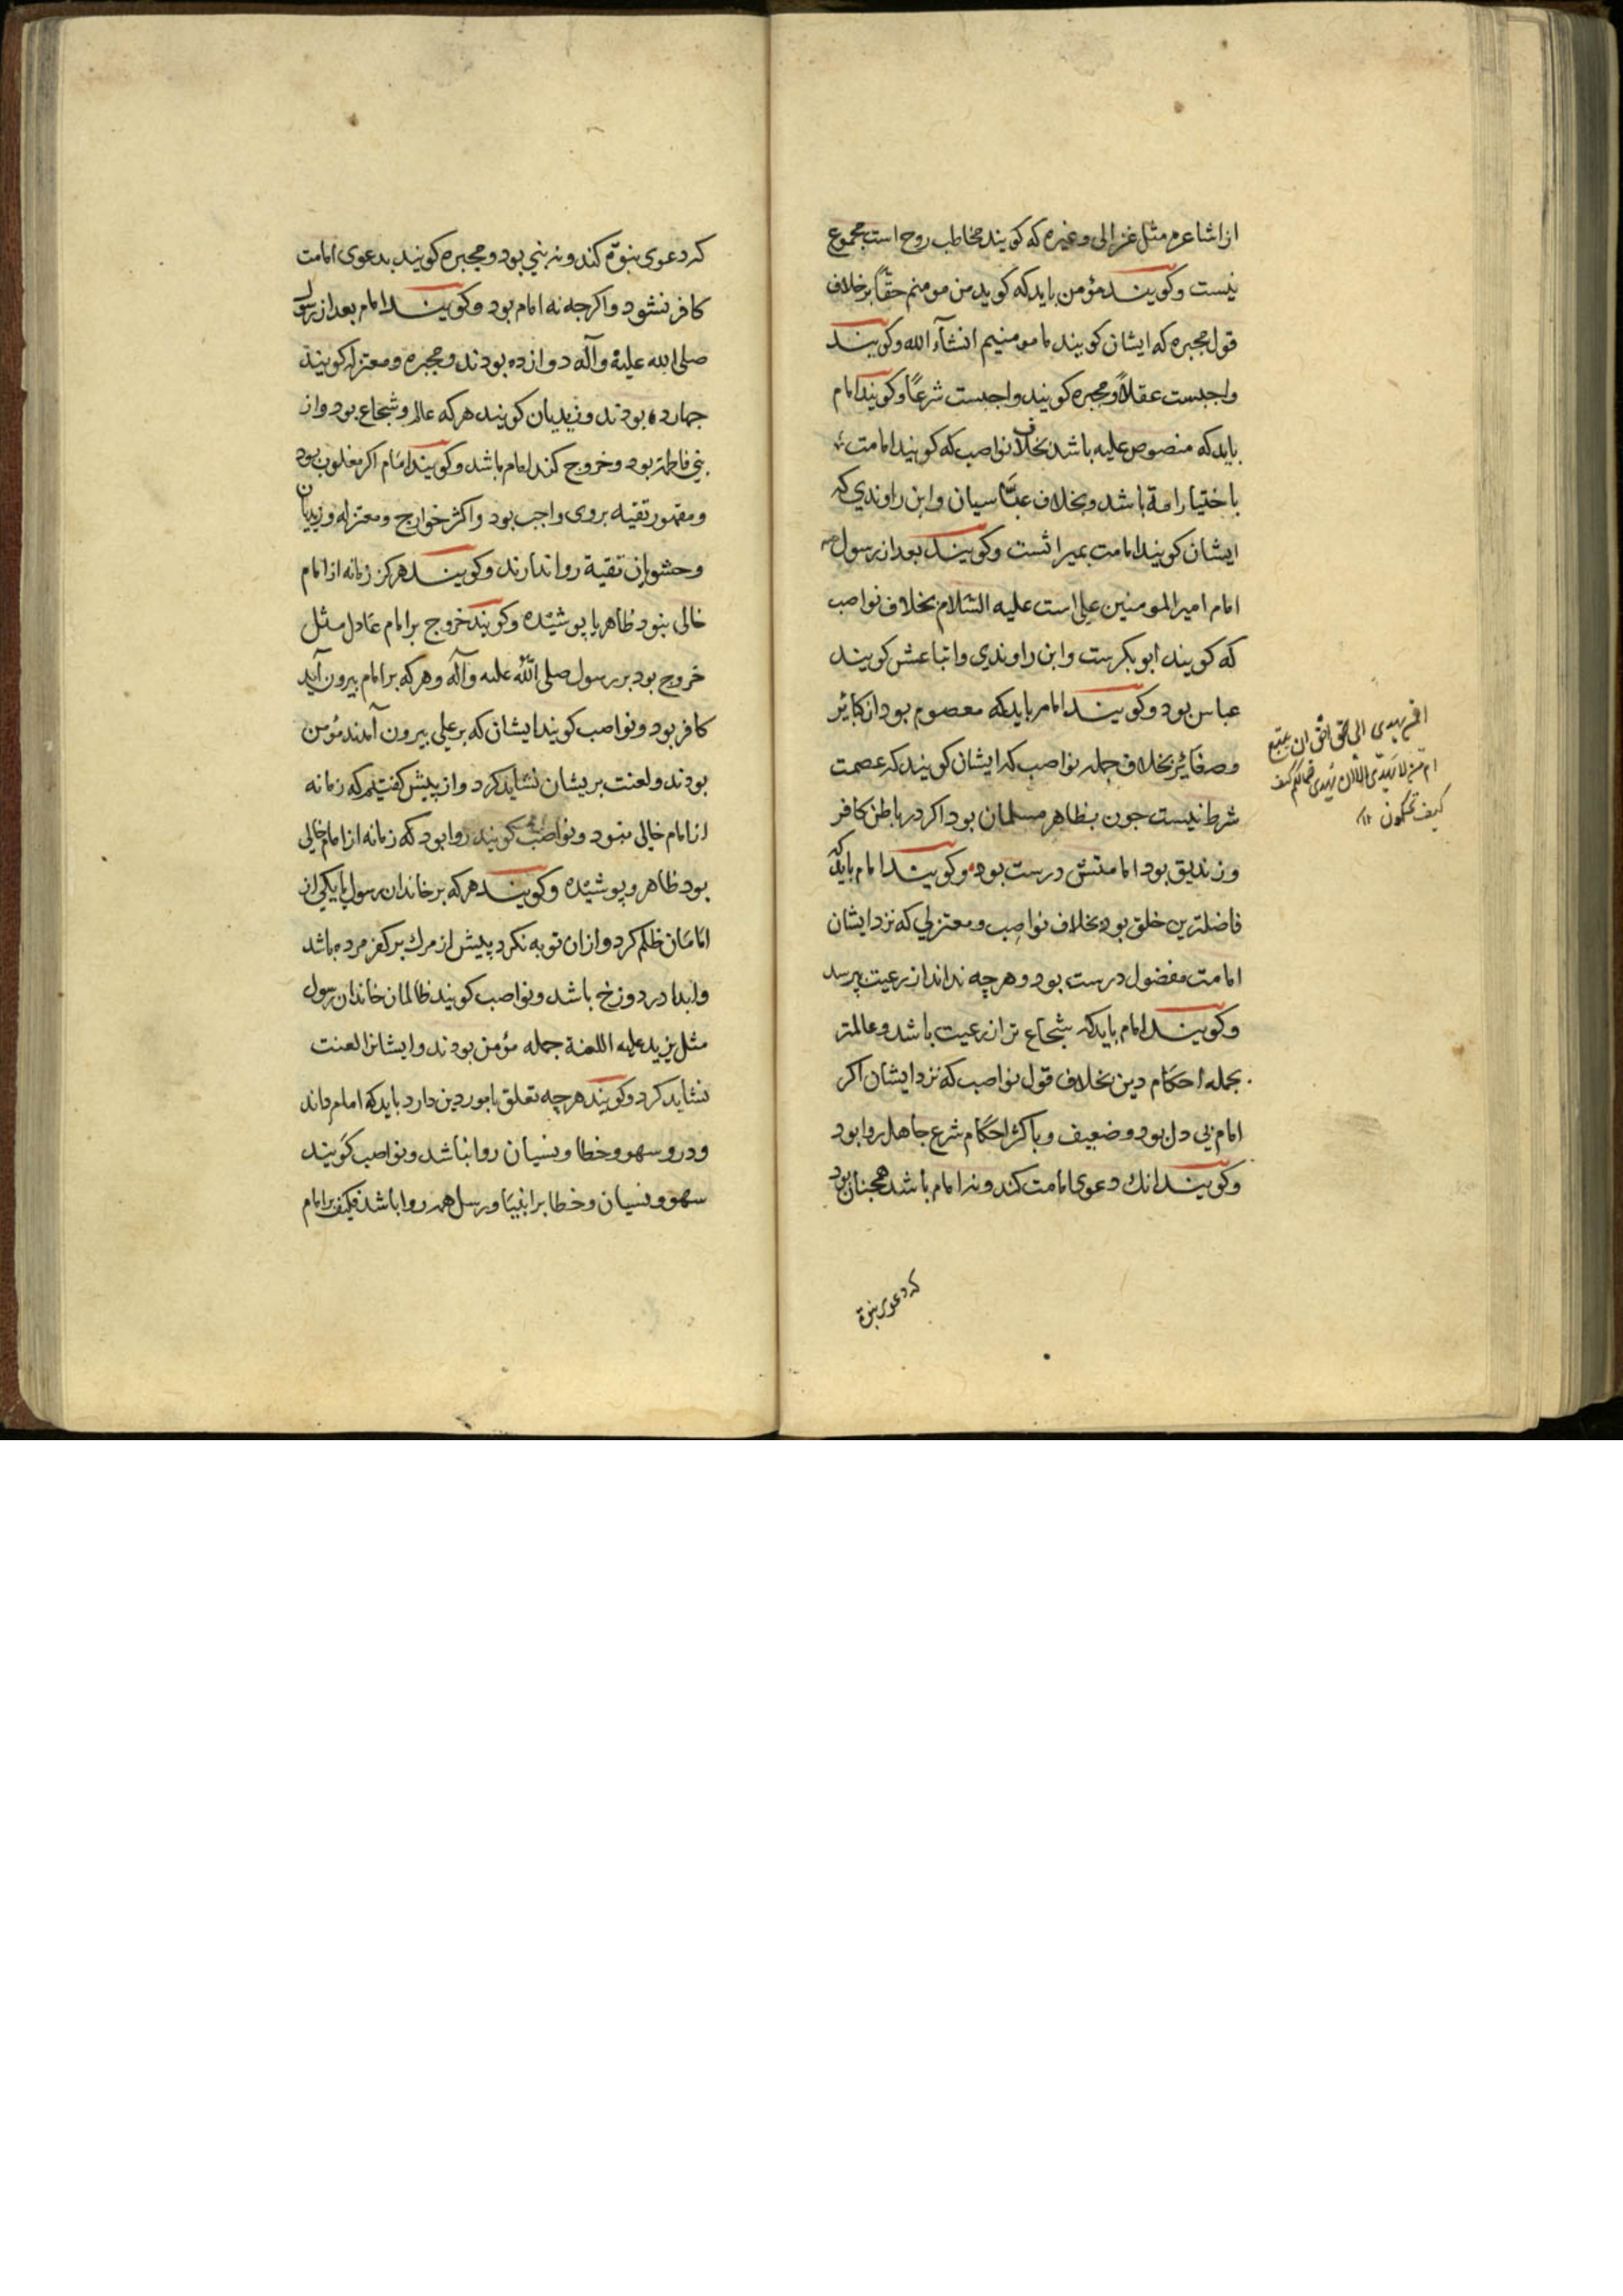 از اشاعره مثل غزالی و غیره که کویند مخاطب روح است مجموع
نیست و کویند مؤمن باید که کوید من مومنم حقاً بر خلاف
قول مجبره که ایشان کویند ما مومنیم انشآء الله و کویند
واجبست عقلاً و مجبره کویند واجبست شرعاً و کویند امام
باید که منصوص علیه باشد بخلاف نواصب که کویند امامت
باختیار امة باشد و بخلاف عبّاسیان و ابن راوندي که
ایشان کویند امامت بمیراثست و کویند بعد از رسول ص
امام امیر المومنین علی است علیه السّلام بخلاف نواصب
که کویند ابو بکرست و ابن راوندي و اتباعش کویند
عباس بود و کویند امام باید که معصوم بود از کبائر
و صغائر بخلاف جمله نواصب که ایشان کویند که عصمت
شرط نیست جون بظاهر مسلمان بود اکر در باطن کافر
و زندیق بود امامتش درست بود و کویند امام باید که
فاضلترین خلق بود بخلاف نواصب و معتزلی که نزد ایشان
امامت مفضول درست بود و هرچه نداند از رعیت بپرسد
و کویند امام باید که شجاع تر از رعیت باشد و عالمتر
بجمله احکام دین بخلاف قول نواصب که نزد ایشان اکر
امام بی دل بود و ضعیف و باکثر احکام شرع جاهل روا بود
و کویند انك دعوی امامت کند و نه امام باشد همجنان بود
که دعوی نبوة
افمن یهدی الی الحق احق ان یتبع
ام من لا یهدی الا ان یهدی فما لکم کیف
کیف تحکمون
که دعوی نبوّة کند و نه نبي بود و مجبره کویند بدعوی امامت
کافر نشود و اکرجه نه امام بود و کویند امام بعد از رسول
صلی الله علیه و آله دوازده بودند و مجبره و معتزله کویند
جهارده بودند و زیدیان کویند هر که عالم و شجاع بود و از
بني فاطمة بود و خروج کند امام باشد و کویند امام اکر مغلوب بود
و مقهور تقیه بر وی واجب بود و اکثر خوارج و معتزله و زیدیان
و حشویان تقیة روا ندارند و کویند هرکز زمانه از امام
خالی نبود ظاهر یا پوشیده و کویند خروج بر امام عادل مثل
خروج بود بر رسول صلی الله علیه و آله و هر که بر امام بیرون آید
کافر بود و نواصب کویند ایشان که بر علي بیرون آمدند مؤمن
بودند و لعنت بریشان نشاید کرد و از پیش کفتیم که زمانه
از امام خالی نبود و نواصب کویند روا بود که زمانه از امام خالی
بود ظاهر و پوشیده و کویند هر که بر خاندان رسول یا یکی از
امامان ظلم کرد و از ان توبه نکرد پیش از مرك بر کفر مرده باشد
و ابدا در دوزخ باشد و نواصب کویند ظالمان خاندان رسول
مثل یزید علیه اللعنة جمله مؤمن بودند و ایشانرا لعنت
نشاید کرد و کویند هرچه تعلق بامور دین دارد باید که امام داند
و درو سهو و خطا و نسیان روا نباشد و نواصب کویند
سهو و نسیان و خطا بر انبیا و رسل همه روا باشد فکیف بر امام